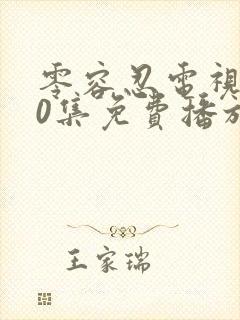 零容忍電視
0集免費播放
王家瑞